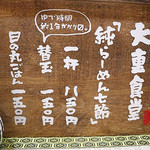 大重食堂
「純らーめん七節」
一杯 八五〇円
ゆで時間
約1分かかります。
替玉 一五〇円
日の丸ごはん 一五〇円